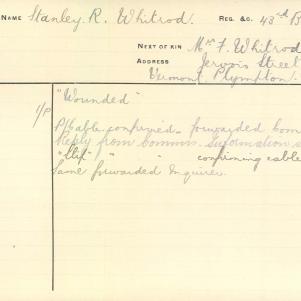 NAME Stanley R. Whitrod. REG. &C. 43rd B
NEXT OF KIN Mr F. Whitrod
ADDRESS Jervois Street
Vermont, Plympton.
"Wounded"
1/P P/Cable confirmed. forwarded Com
Reply from Commrs. Information s
"Slip" " " confirming cable
Same forwarded Enquirer.